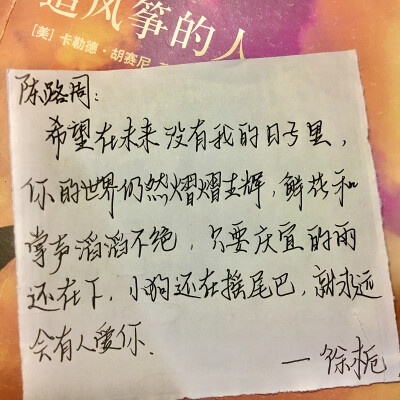 追风筝的人
[美]卡勒德·胡赛尼
陈路周:
希望在未来没有我的日子里,
你的世界仍然熠熠生辉,鲜花和
掌声滔滔不绝,只要庆宜的雨
还在下,小狗还在摇尾巴,就永远
会有人爱你.
—徐栀